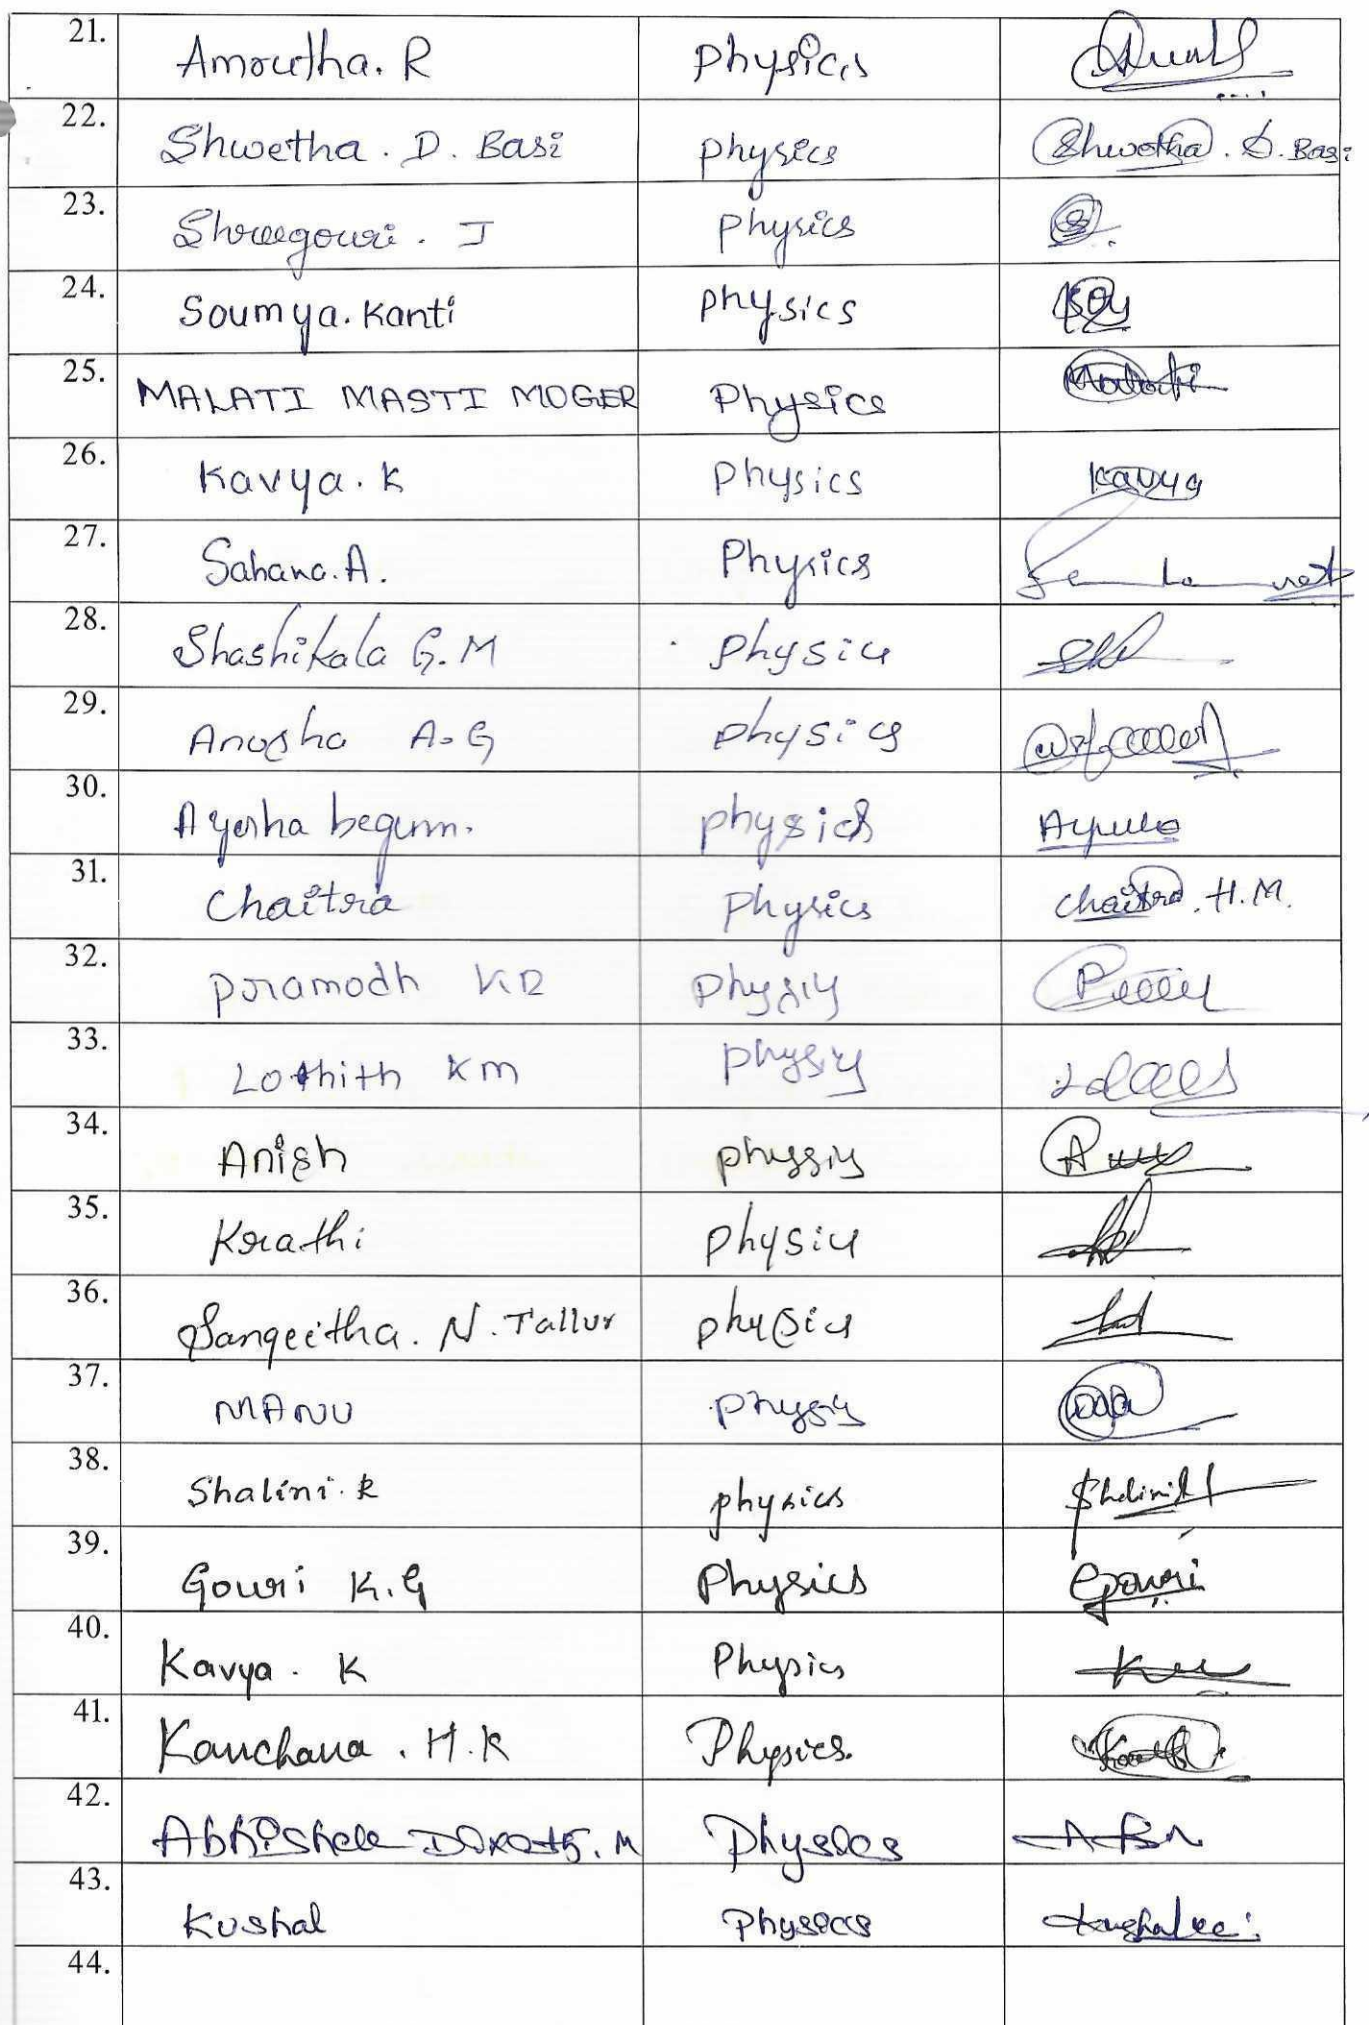 21. Amrutha. R Physics
22. Shwetha. D. Basi Physics Shwetha. D. Basi
23. Shreegouri. J Physics S.
24. Soumya. Kanti Physics
25. MALATI MASTI MOGER Physics Malati
26. Kavya. K Physics Kavya
27. Sahana. A. Physics
28. Shashikala G. M Physics
29. Anusha A. G Physics
30. Ayesha begum. Physics
31. Chaitra Physics Chaitra. H.M.
32. Pramodh KR Physics
33. Lothith KM Physics
34. Anish Physics
35. Krathi Physics
36. Sangeetha. N. Tallur Physics
37. MANU Physics
38. Shalini. R Physics Shalini
39. Gouri K. G Physics Gouri
40. Kavya. K Physics
41. Kanchana. H. R Physics.
42. Abhishek M Physics
43. Kushal Physics
44.